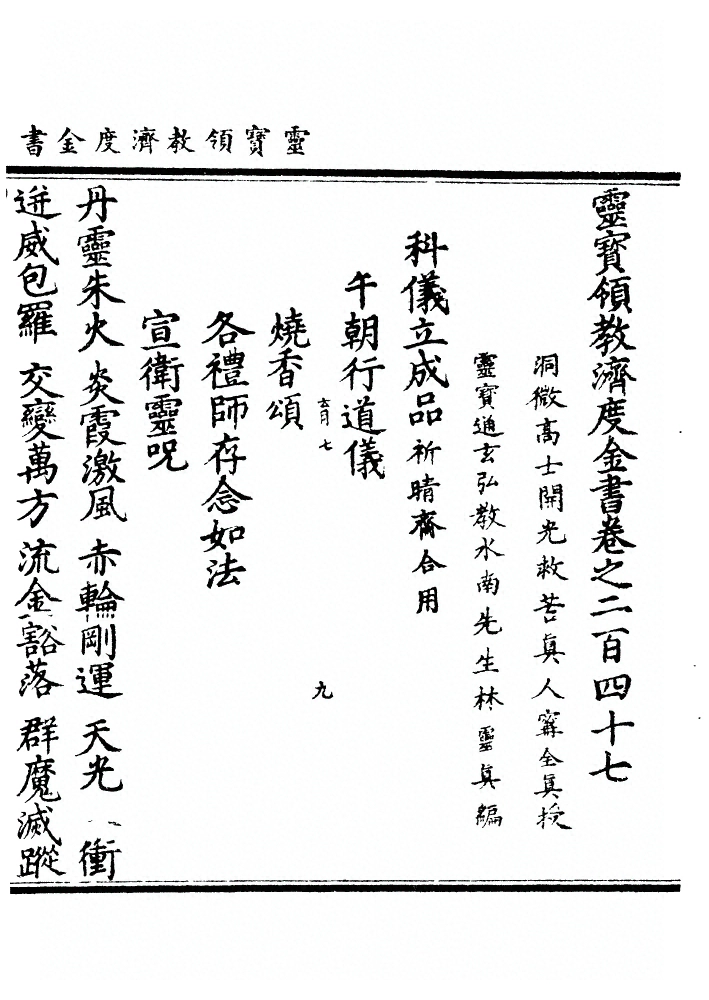 靈寶領教濟度金書
靈寶領教濟度金書卷之二百四十七
洞微高士開光救苦真人寗全真授
靈寶通玄弘教水南先生林靈真編
科儀立成品 祈晴齋合用
午朝行道儀
七
九
燒香頌
各禮師存念如法
宣衛靈呪
丹靈朱火 炎霞激風 赤輪剛運 天光 衝
迸威包羅 交變萬方 流金豁落 群魔滅蹤